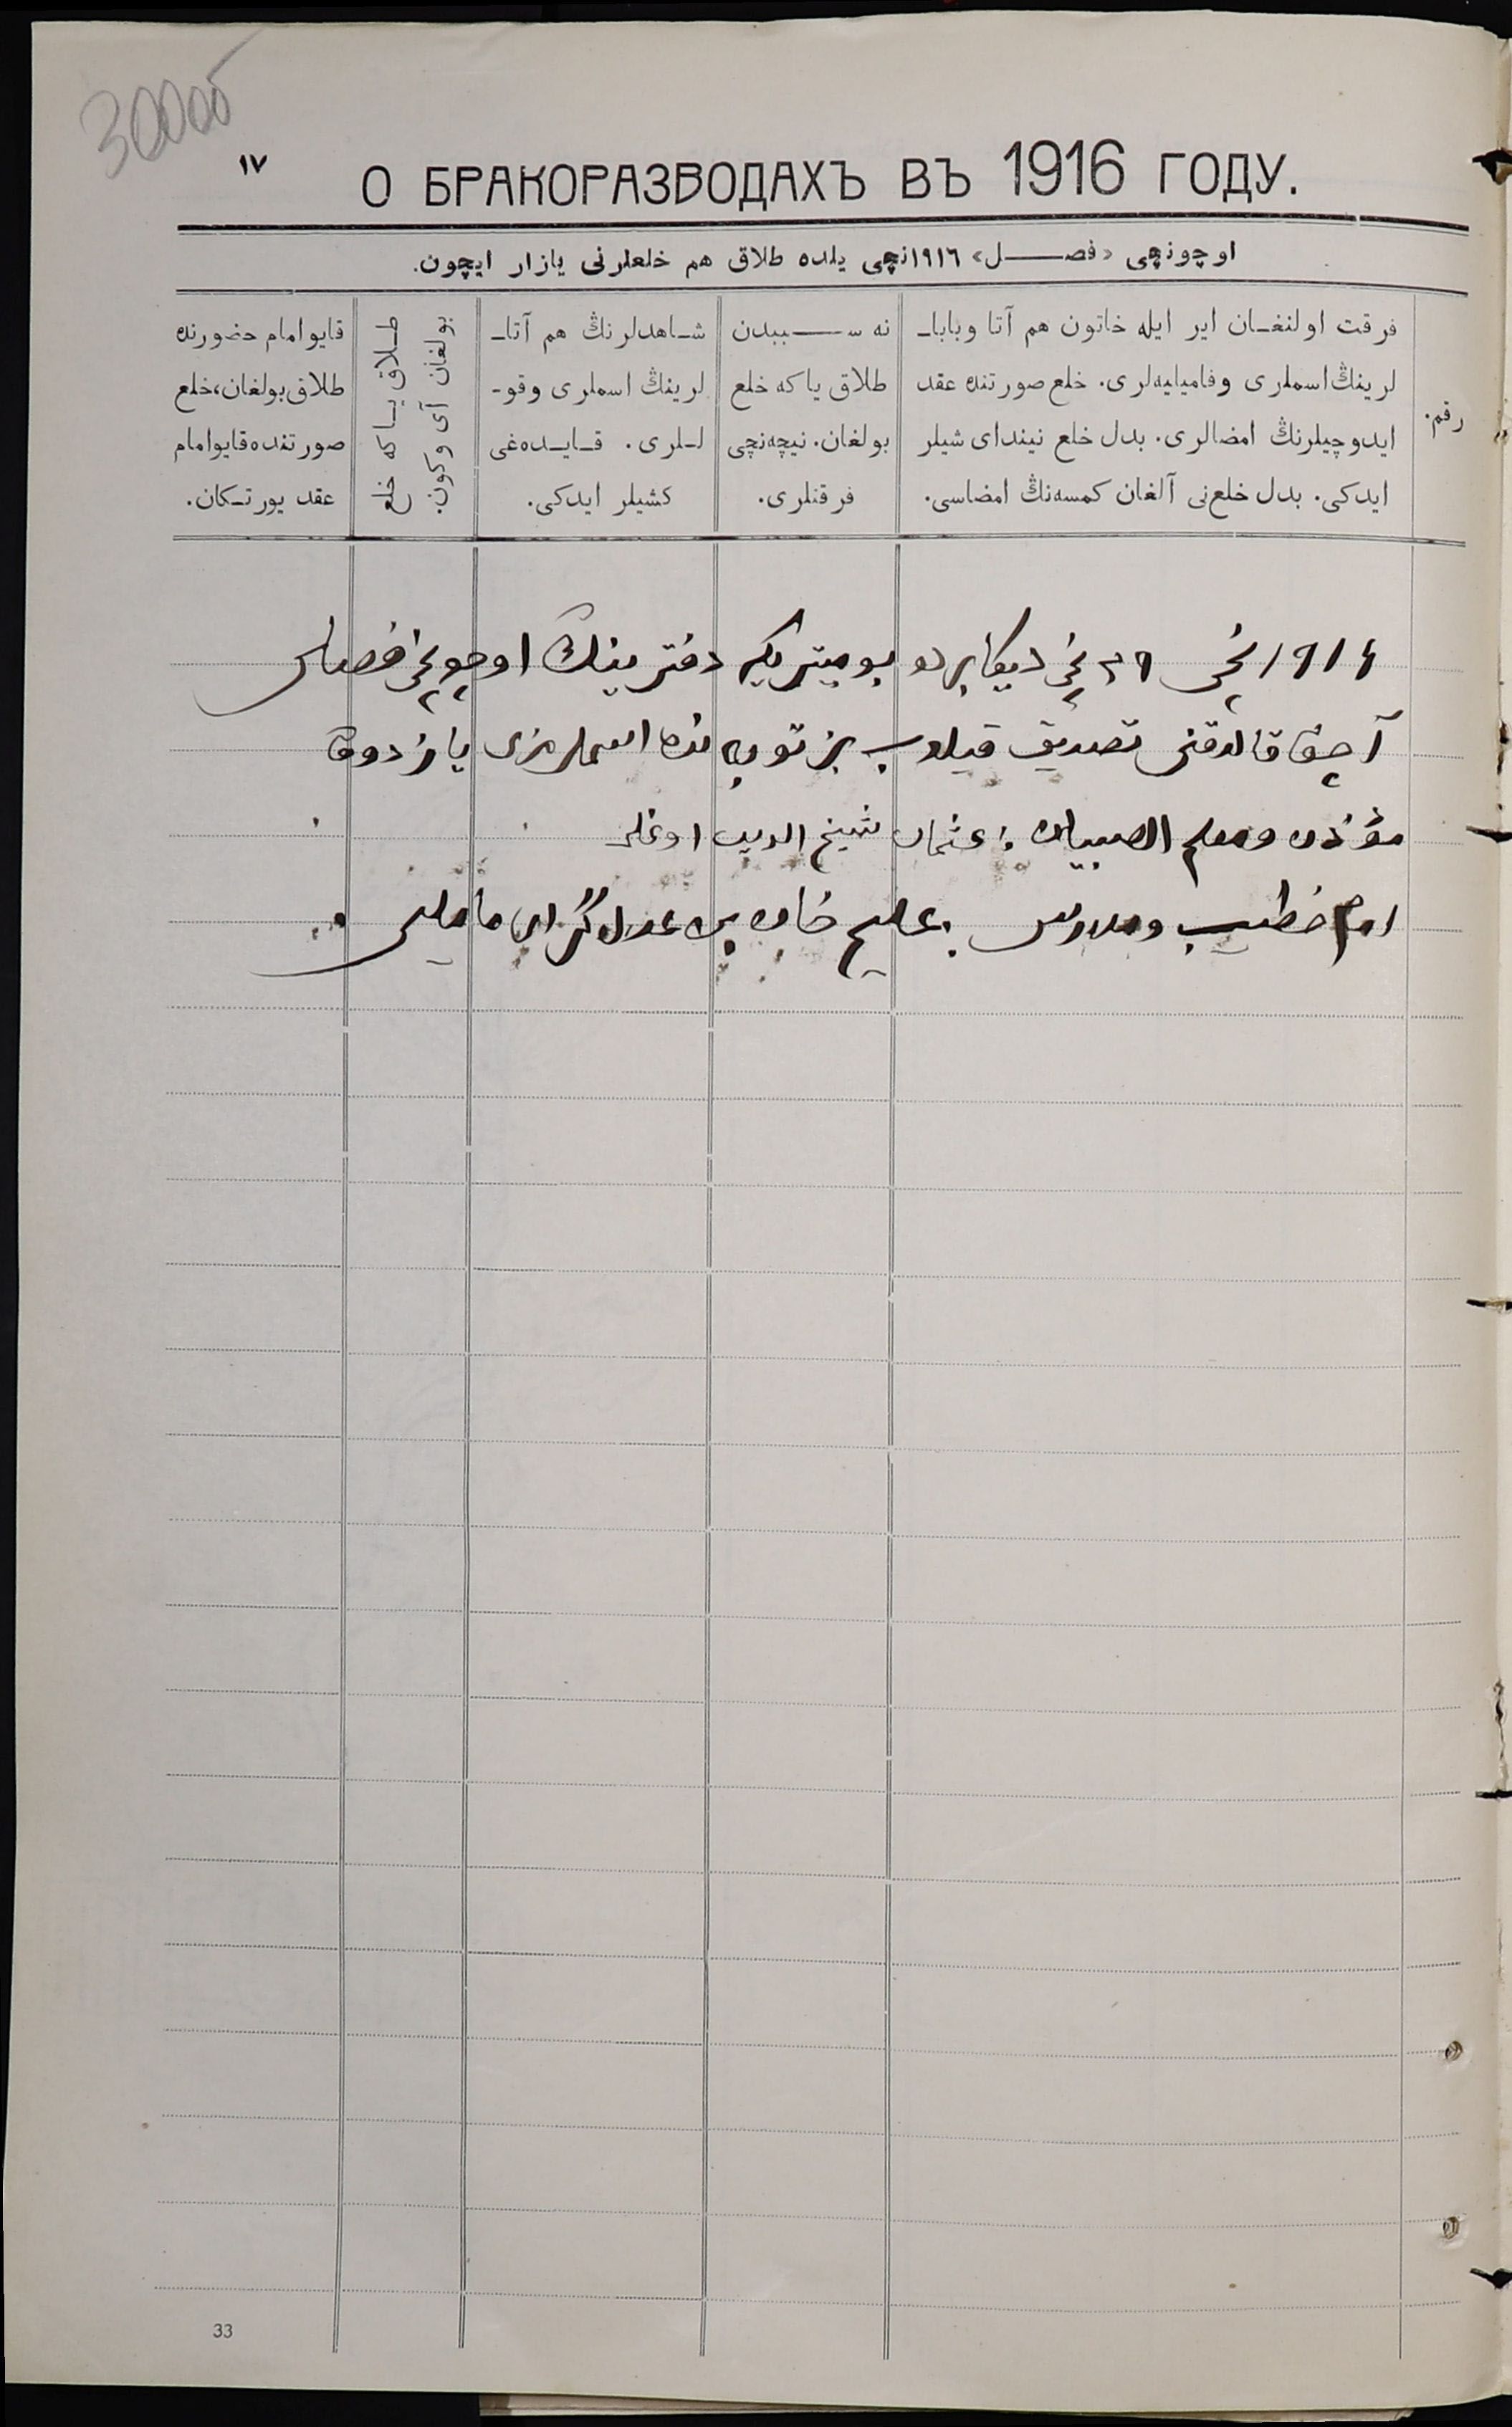 300об
١٧
О БРАКОРАЗВОДАХЪ ВЪ 1916 ГОДУ.
اوچونچی «فصل» ١٩١٦نچی یلده طلاق هم خلعلرنی یازار ایچون.
رقم.
فرقت اولنغان ایر ایله خاتون هم آتا وبابا‌ـ
لرینڭ اسملری وفامیلیه‌لری. خلع صورتنده عقد
ایدوچیلرنڭ امضالری. بدل خلع نیندای شیلر
ایدکی. بدل خلع‌نی آلغان کمسه‌نڭ امضاسی.
نه سببدن
طلاق یاکه خلع
بولغان. نیچه‌نچی
فرقتلری.
شاهدلرنڭ هم آتا‌ـ
لرینڭ اسملری وقو‌ـ
للری. قایده‌غی
کشیلر ایدکی.
طلاق یاکه خلع
بولغان آی وکون.
قایو امام حضورنده
طلاق بولغان، خلع
صورتنده قایو امام
عقد یورتکان.
١٩١٦ نچی ٣١ نچی دیکابرده بو میتریکه دفترینڭ اوچونچی فصلی
آچق قالدقنی تصدیق قیلوب بز توبانده اسملرمزنی یازدوق
مؤذن ومعلم الصبیان: عثمان شیخ الدین اوغلی
امام خطیب ومدرس:
33